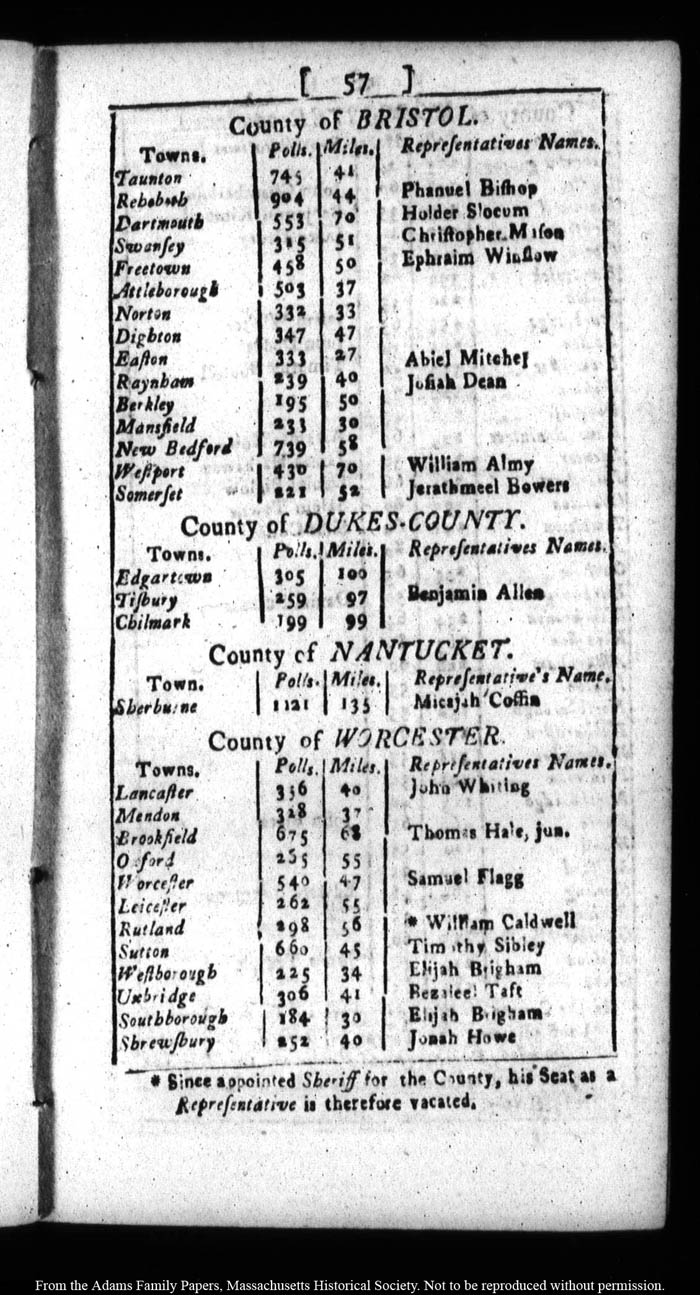 [ 57 ]
County of BRISTOL.
Towns. Polls. Miles. Repreſentatives Names.
Taunton 745 41
Rehoboth 904 44 Phanuel Biſhop
Dartmouth 553 70 Holder Slocum
Swanſey 315 51 Chriſtopher Maſon
Freetown 458 50 Ephraim Winſlow
Attleborough 503 37
Norton 332 33
Dighton 347 47
Eaſton 333 27 Abiel Mitchel
Raynham 239 40 Joſiah Dean
Berkley 195 50
Mansfield 233 30
New Bedford 739 58
Weſtport 430 70 William Almy
Somerſet 221 52 Jerathmeel Bowers
County of DUKES-COUNTY.
Towns. Polls. Miles. Repreſentatives Names.
Edgartown 305 100
Tiſbury 259 97 Benjamin Allen
Chilmark 199 99
County of NANTUCKET.
Town. Polls. Miles. Repreſentative's Name.
Sherburne 1121 135 Micajah Coffin
County of WORCESTER.
Towns. Polls. Miles. Repreſentatives Names.
Lancaſter 336 40 John Whiting
Mendon 328 37
Brookfield 675 68 Thomas Hale, jun.
Oxford 255 55
Worceſter 540 47 Samuel Flagg
Leiceſter 262 55
Rutland 298 56 * William Caldwell
Sutton 660 45 Timothy Sibley
Weſtborough 225 34 Elijah Brigham
Uxbridge 306 41 Bezaleel Taft
Southborough 184 30 Elijah Brigham
Shrewſbury 252 40 Jonah Howe
* Since appointed Sheriff for the County, his Seat as a
Repreſentative is therefore vacated.
From the Adams Family Papers, Massachusetts Historical Society. Not to be reproduced without permission.